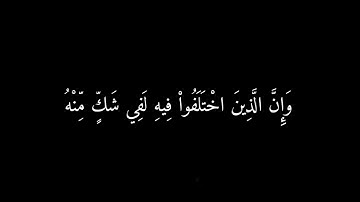 وَإِنَّ الَّذِينَ اخْتَلَفُواْ فِيهِ لَفِي شَكٍّ مِّنْهُ